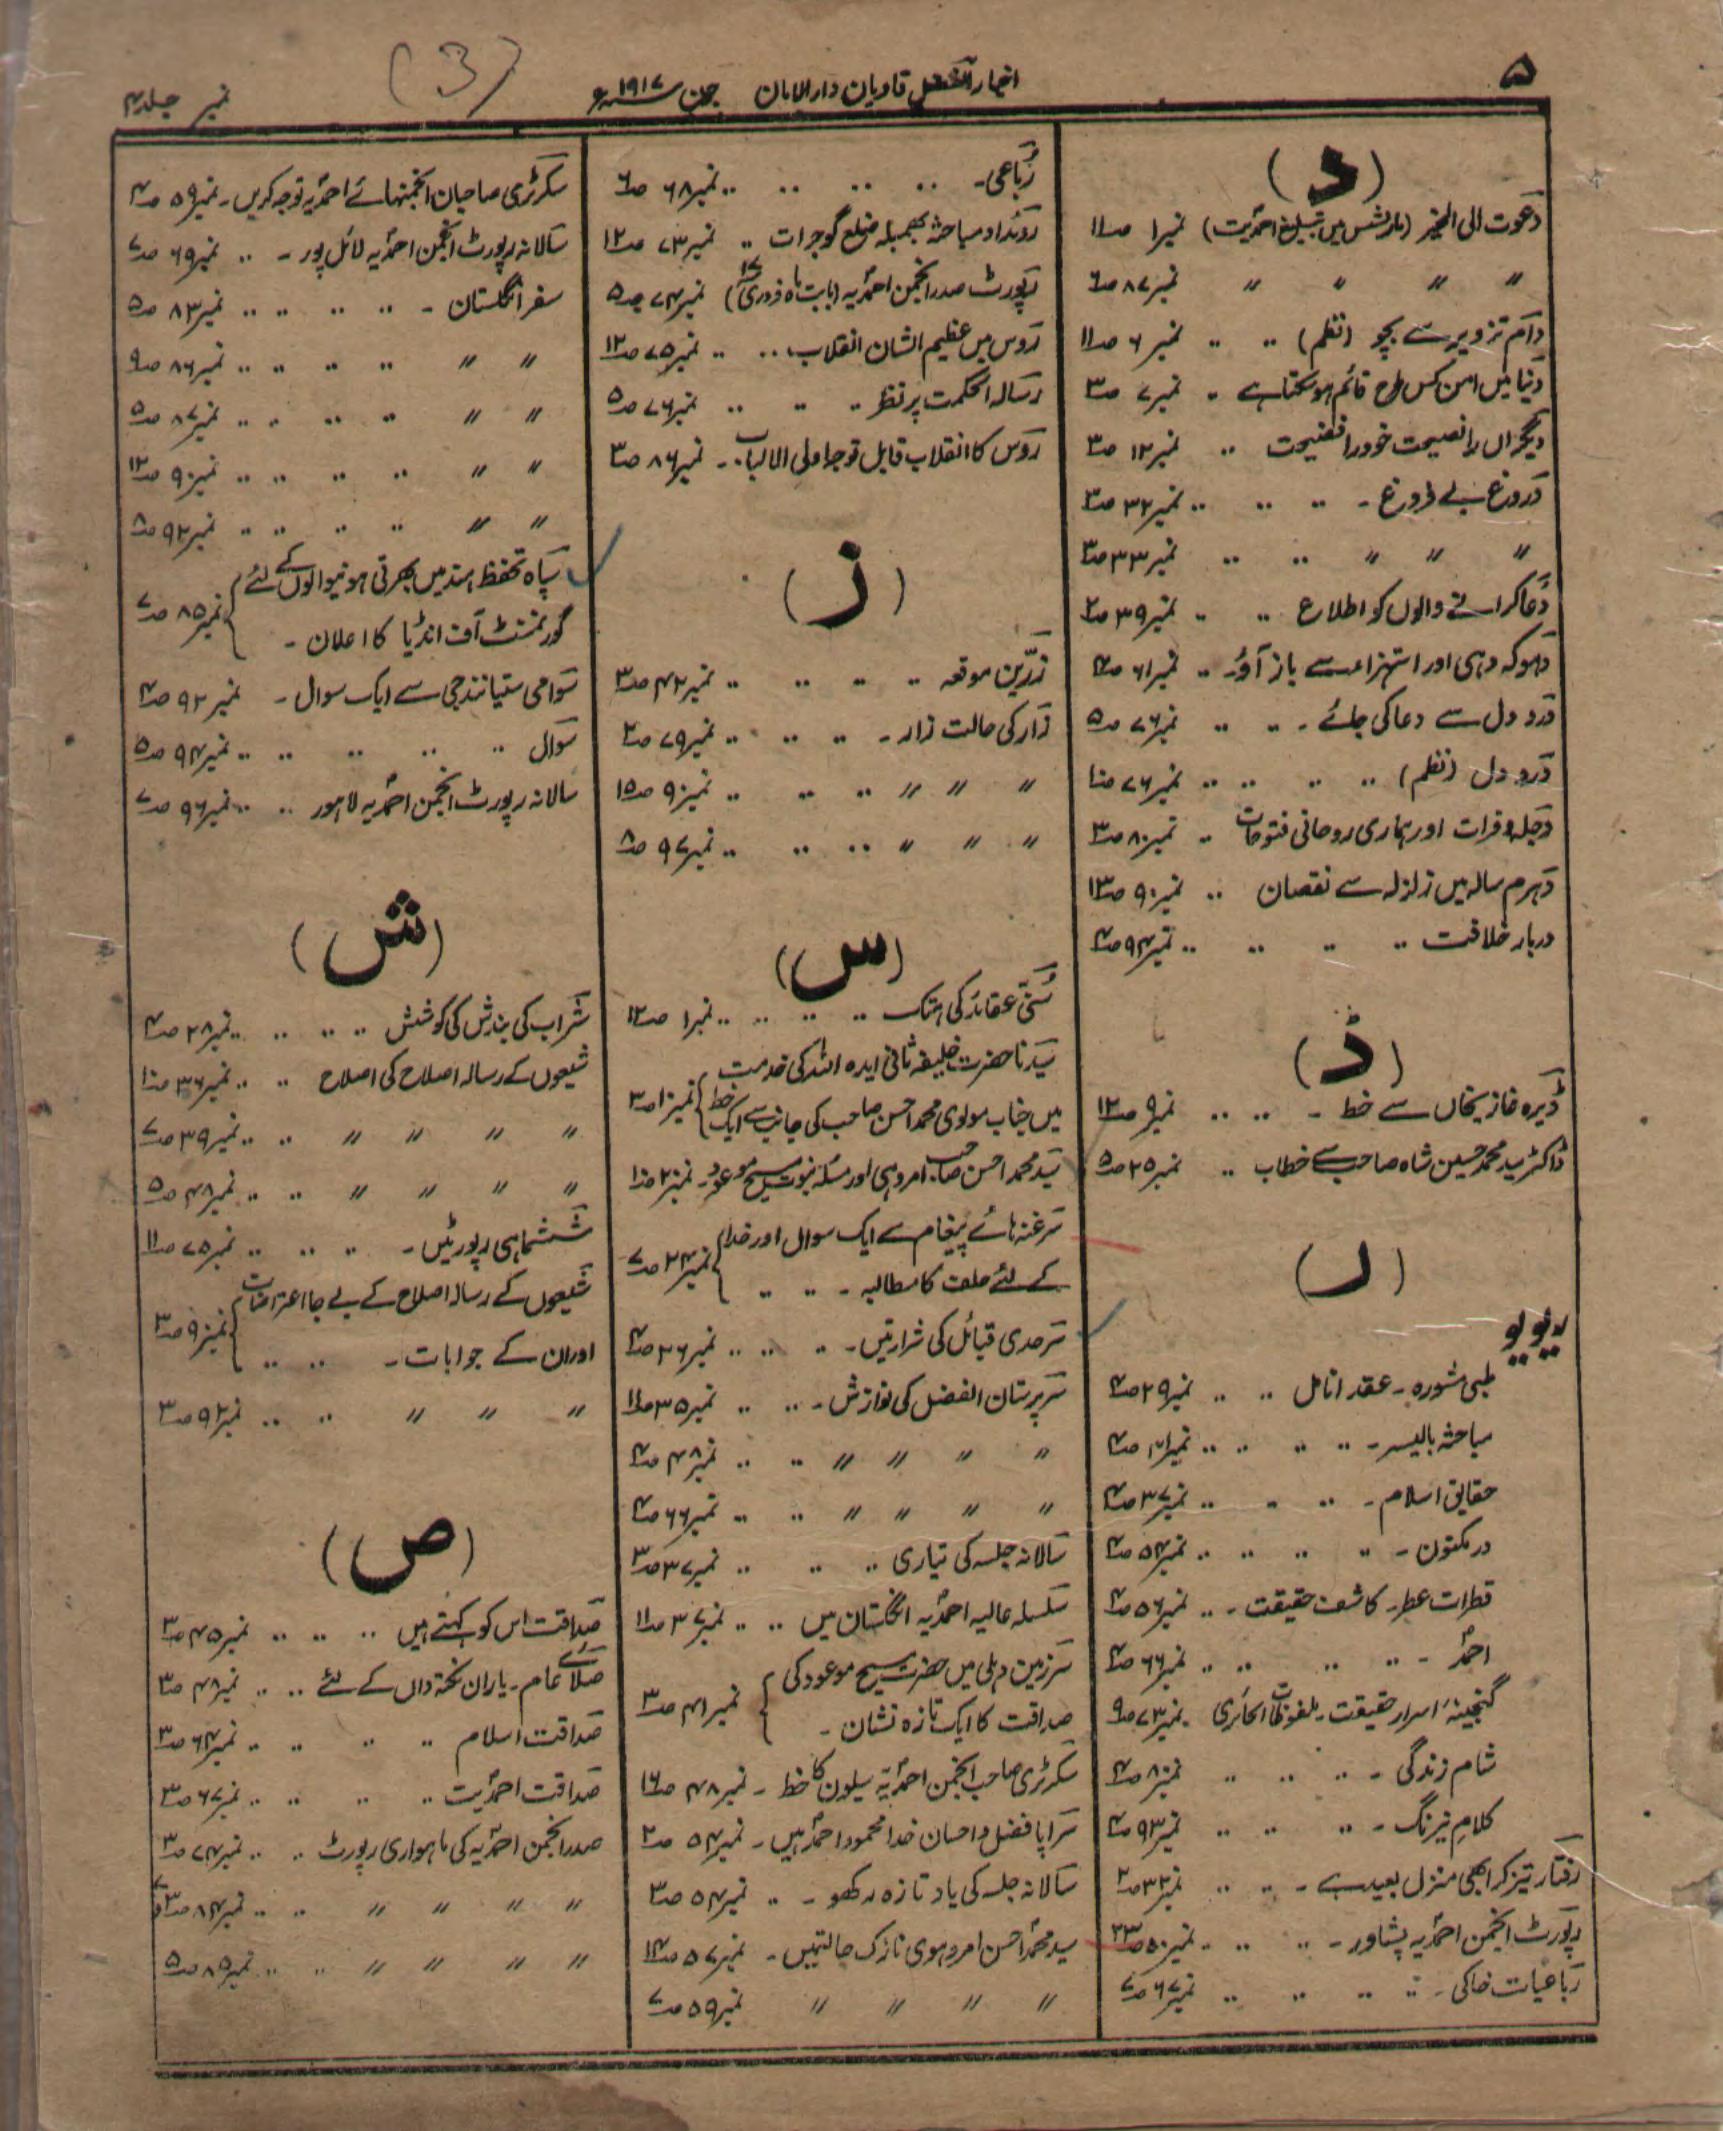 ۵
اخبار الفضل قادیان دارالامان جون ۱۹۱۷ء
(3)
نمبر جلد ۴
(د)
دعوت الی الخیر (ماریشس میں تبلیغ احمدیت) نمبر ۱ صـ۱۱
〃 〃 〃 〃 نمبر ۸۷ صـ۶
دام تزویر سے بچو (نظم) .. .. نمبر ۶ صـ۱۱
دنیا میں امن کس طرح قائم ہو سکتا ہے .. نمبر ۷ صـ۳
دیگراں را نصیحت خود را فضیحت .. نمبر ۱۲ صـ۳
دروغ بے فروغ - .. .. .. نمبر ۳۲ صـ۳
〃 〃 〃 .. .. نمبر ۳۳ صـ۳
دعا کرانے والوں کو اطلاع .. .. نمبر ۳۹ صـ۲
دہوکہ دہی اور استہزاء سے باز آؤ - .. نمبر ۶۱ صـ۴
درد دل سے دعا کی جائے - .. .. نمبر ۷۶ صـ۵
درد دل (نظم) .. .. .. .. نمبر ۷۶ صـ۱۰
دجلہ و فرات اور ہماری روحانی فتوحات .. نمبر ۸۰ صـ۳
دہرم سالہ میں زلزلہ سے نقصان .. نمبر ۹۰ صـ۱۳
دربار خلافت .. .. .. .. نمبر ۹۴ صـ۴
(ڈ)
ڈیرہ غازیخاں سے خط - .. .. نمبر ۹ صـ۱۲
ڈاکٹر سید محمد حسین شاہ صاحب سے خطاب .. نمبر ۲۵ صـ۵
(ر)
ریویو
طبی مشورہ - عقد انامل .. .. نمبر ۲۹ صـ۴
مباحثہ بالیسر - .. .. .. .. نمبر ۳۱ صـ۴
حقایق اسلام - .. .. .. نمبر ۳۷ صـ۴
در مکنون - .. .. .. .. نمبر ۵۴ صـ۴
قطرات عطر - کاشف حقیقت - .. نمبر ۵۶ صـ۴
احمدؐ - .. .. .. .. نمبر ۶۶ صـ۴
گنجینۂ اسرار حقیقت - ملفوظات الحائری نمبر ۷۳ صـ۹
شام زندگی - .. .. .. نمبر ۸۰ صـ۴
کلام نیرنگ - .. .. .. نمبر ۹۳ صـ۴
رفتار تیز کر ابھی منزل بعید ہے - .. .. نمبر ۳۲ صـ۲
رپورٹ انجمن احمدیہ پشاور - .. .. .. نمبر ۵۰ صـ۲۳
رباعیات خاکی - .. .. .. .. نمبر ۶۷ صـ۷
رباعی - .. .. .. .. نمبر ۶۸ صـ۶
روئداد مباحثہ بھمبلہ ضلع گوجرات .. نمبر ۷۳ صـ۱۲
رپورٹ صدر انجمن احمدیہ (بابت ماہ فروری ۱۷ء) نمبر ۷۴ صـ۵
روس میں عظیم الشان انقلاب .. .. نمبر ۷۵ صـ۱۲
رسالہ الحکمت پر نظر .. .. .. نمبر ۷۶ صـ۵
روس کا انقلاب قابل توجہ اولی الالباب - نمبر ۸۶ صـ۳
(ز)
زرّین موقعہ .. .. .. .. نمبر ۴۲ صـ۳
زار کی حالت زار - .. .. .. نمبر ۷۹ صـ۲
〃 〃 〃 〃 .. .. .. نمبر ۹۰ صـ۱۵
〃 〃 〃 〃 .. .. .. نمبر ۹۷ صـ۸
(س)
سُنّی عقائد کی ہتک .. .. .. .. نمبر ۱ صـ۱۲
سیدنا حضرت خلیفہ ثانی ایدہ اللہ کی خدمت
میں جناب مولوی محمد احسن صاحب کی جانب سے ایک خط } نمبر ۱۰ صـ۳
سید محمد احسن صاحب امروہی اور مسئلہ نبوت مسیح موعود - نمبر ۲۰ صـ۱۰
سرغنہ ہائے پیغام سے ایک سوال اور خدا
کے لئے حلف کا مطالبہ - .. .. } نمبر ۲۴ صـ۷
سرحدی قبائل کی شرارتیں - .. .. .. نمبر ۳۶ صـ۴
سرپرستان الفضل کی نوازش - .. .. نمبر ۳۵ صـ۱۱
〃 〃 〃 〃 〃 .. .. نمبر ۴۸ صـ۴
〃 〃 〃 〃 〃 .. .. نمبر ۶۶ صـ۴
سالانہ جلسہ کی تیاری .. .. .. نمبر ۳۷ صـ۳
سلسلہ عالیہ احمدیہ انگلستان میں .. .. نمبر ۳۷ صـ۱۱
سرزمین دہلی میں حضرت مسیح موعود کی
صداقت کا ایک تازہ نشان - } نمبر ۴۱ صـ۳
سکرٹری صاحب انجمن احمدیہ سیلون کا خط - نمبر ۴۸ صـ۱۶
سراپا فضل و احسان خدا محمود احمد ہیں - نمبر ۵۴ صـ۲
سالانہ جلسہ کی یاد تازہ رکھو - .. نمبر ۵۴ صـ۳
سید محمد احسن امروہوی نازک حالتمیں - نمبر ۵۷ صـ۱۲
〃 〃 〃 〃 نمبر ۵۹ صـ۷
سکرٹری صاحبان انجمنہائے احمدیہ توجہ کریں - نمبر ۵۹ صـ۴
سالانہ رپورٹ انجمن احمدیہ لائل پور - .. نمبر ۶۹ صـ۷
سفر انگلستان - .. .. .. .. نمبر ۸۳ صـ۵
〃 〃 .. .. .. .. نمبر ۸۶ صـ۹
〃 〃 .. .. .. .. نمبر ۸۷ صـ۵
〃 〃 .. .. .. .. نمبر ۹۰ صـ۱۲
〃 〃 .. .. .. .. نمبر ۹۲ صـ۸
سپاہ تحفظ ہند میں بھرتی ہونیوالوں کے لئے
گورنمنٹ آف انڈیا کا اعلان - } نمبر ۸۵ صـ۷
سوامی ستیانندجی سے ایک سوال - نمبر ۹۲ صـ۴
سوال .. .. .. .. .. نمبر ۹۴ صـ۵
سالانہ رپورٹ انجمن احمدیہ لاہور .. .. نمبر ۹۶ صـ۷
(ش)
شراب کی بندش کی کوشش .. .. .. نمبر ۲۸ صـ۴
شیعوں کے رسالہ اصلاح کی اصلاح .. .. نمبر ۳۶ صـ۱۰
〃 〃 〃 〃 .. .. نمبر ۳۹ صـ۷
〃 〃 〃 〃 .. .. نمبر ۴۸ صـ۵
ششماہی رپورٹیں - .. .. .. نمبر ۷۵ صـ۱۱
شیعوں کے رسالہ اصلاح کے بے جا اعتراضات
اور ان کے جوابات - .. .. } نمبر ۹۰ صـ۳
〃 〃 〃 〃 .. .. نمبر ۹۲ صـ۳
(ص)
صداقت اس کو کہتے ہیں .. .. .. نمبر ۴۵ صـ۳
صلائے عام - یاران نکتہ داں کے لئے .. .. نمبر ۴۸ صـ۳
صداقت اسلام .. .. .. .. نمبر ۶۴ صـ۳
صداقت احمدیت .. .. .. .. نمبر ۶۷ صـ۳
صدر انجمن احمدیہ کی ماہواری رپورٹ .. .. نمبر ۷۴ صـ۳
〃 〃 〃 〃 〃 .. .. نمبر ۸۴
〃 〃 〃 〃 〃 .. .. نمبر ۸۹ صـ۵